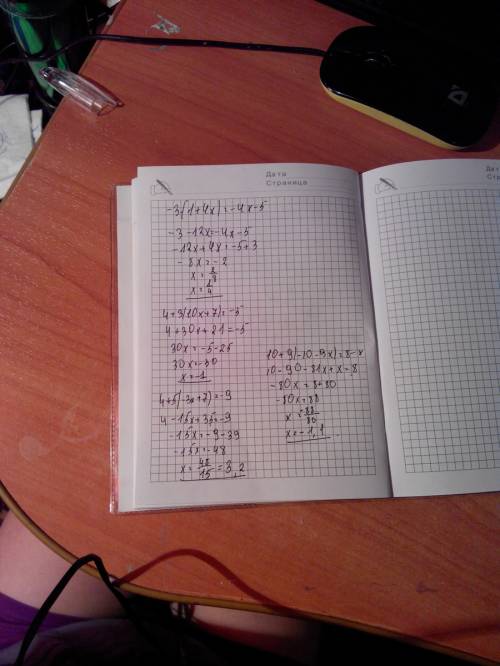 Дата
Страница
-3(1+4x)=-4x-5
-3-12x=-4x-5
-12x+4x=-5+3
-8x=-2
x=2/8
x=1/4
4+3(10x+7)=-5
4+30x+21=-5
30x=-5-25
30x=-30
x=-1
4+5(-3x+7)=-9
4-15x+35=-9
-15x=-9-39
-15x=-48
x=48/15=3,2
10+9(-10-9x)=8-x
10-90-81x+x=8
-80x=8+80
-80x=88
x=-88/80
x=-1,1
Дата
Страница